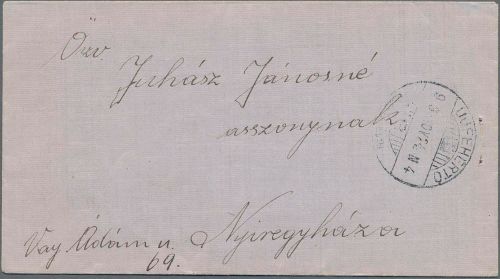 Özv.
Juhász Jánosné
asszonynak
Nyiregyháza
Vay Ádám u.
69.
ÚJFEHÉRTÓ